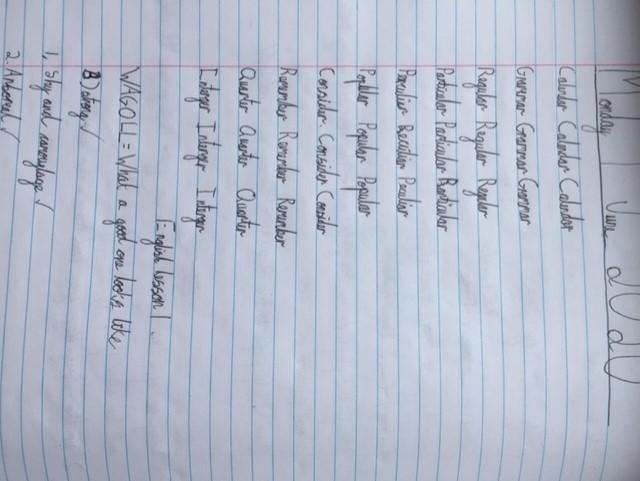 Monday 1 June 2020
Calendar Calendar Calendar
Grammar Grammar Grammar
Regular Regular Regular
Particular Particular Particular
Peculiar Peculiar Peculiar
Popular Popular Popular
Consider Consider Consider
Remember Remember Remember
Quarter Quarter Quarter
Interger Interger Interger
English lesson 1.
WAGOLL = What a good one looks like
1. Shy and camouflage ✓
2. Arboreal ✓